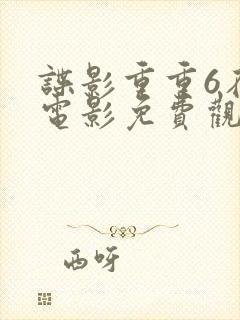 諜影重重6在
電影免費觀
西呀